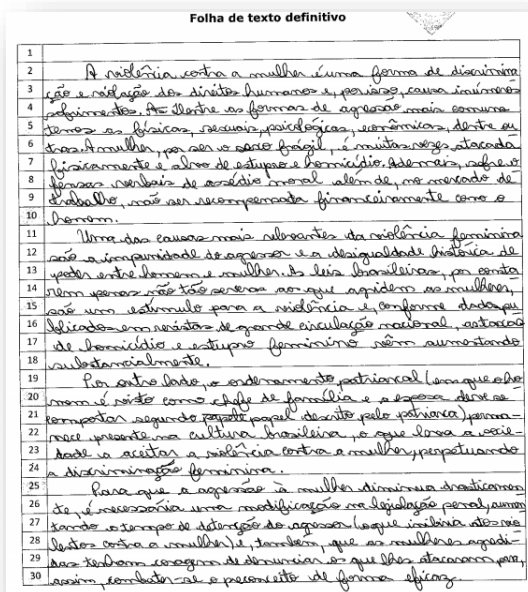 Folha de texto definitivo
1
2 A violência contra a mulher é uma forma de discrimina
3 ção e violação dos direitos humanos e, por isso, causa inúmeros
4 sofrimentos. As dentre as formas de agressão mais comuns
5 temos as físicas, sexuais, psicológicas, econômicas, dentre ou
6 tras. A mulher, por ser o sexo frágil, é muitas vezes atacada
7 fisicamente e alvo de estupro e homicídio. Ademais, sofre o
8 fensas verbais de assédio moral além de, no mercado de
9 trabalho, não ser recompensada financeiramente como o
10 homem.
11 Uma das causas mais relevantes da violência feminina
12 são a impunidade do agressor e a desigualdade histórica de
13 poder entre homem e mulher. As leis brasileiras, por conta
14 rem penas não tão severas aos que agridem as mulheres,
15 são um estímulo para a violência e, conforme dados pu
16 blicados em revistas de grande circulação nacional, as taxas
17 de homicídio e estupro feminino vêm aumentando
18 substancialmente.
19 Por outro lado, o ordenamento patriarcal (em que o ho
20 mem é visto como chefe de família e a esposa deve se
21 comportar segundo papel descrito pelo patriarca) perma-
22 nece presente na cultura brasileira, o que leva a socie-
23 dade a aceitar a violência contra a mulher, perpetuando
24 a discriminação feminina.
25 Para que a agressão à mulher diminua drasticamen
26 te, é necessária uma modificação na legislação penal, aumen
27 tando o tempo de detenção do agressor (o que inibiria atos vio
28 lentos contra a mulher) e, também, que as mulheres agredi-
29 das tenham coragem de denunciar os que lhes atacaram para,
30 assim, combater-se o preconceito de forma eficaz.